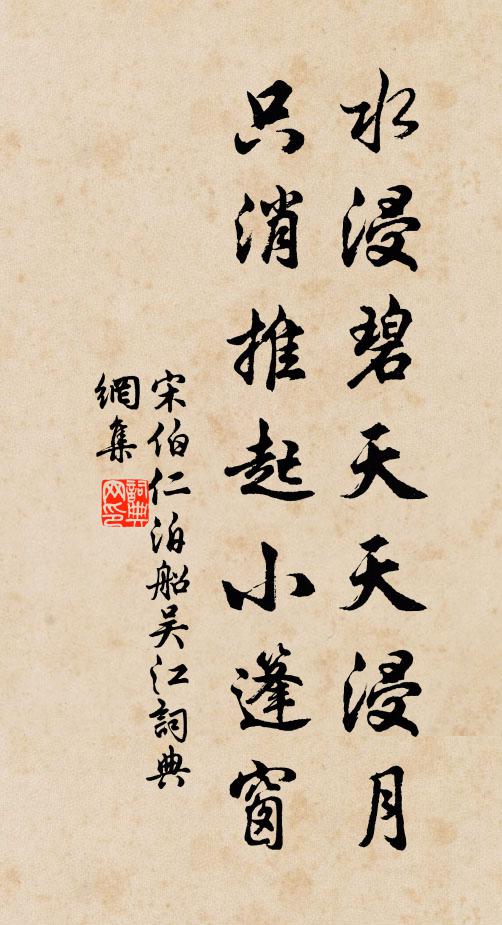 水浸碧天天浸月
只消推起小蓬窗
宋伯仁泊船吴江詞典
網集
詞典
网印